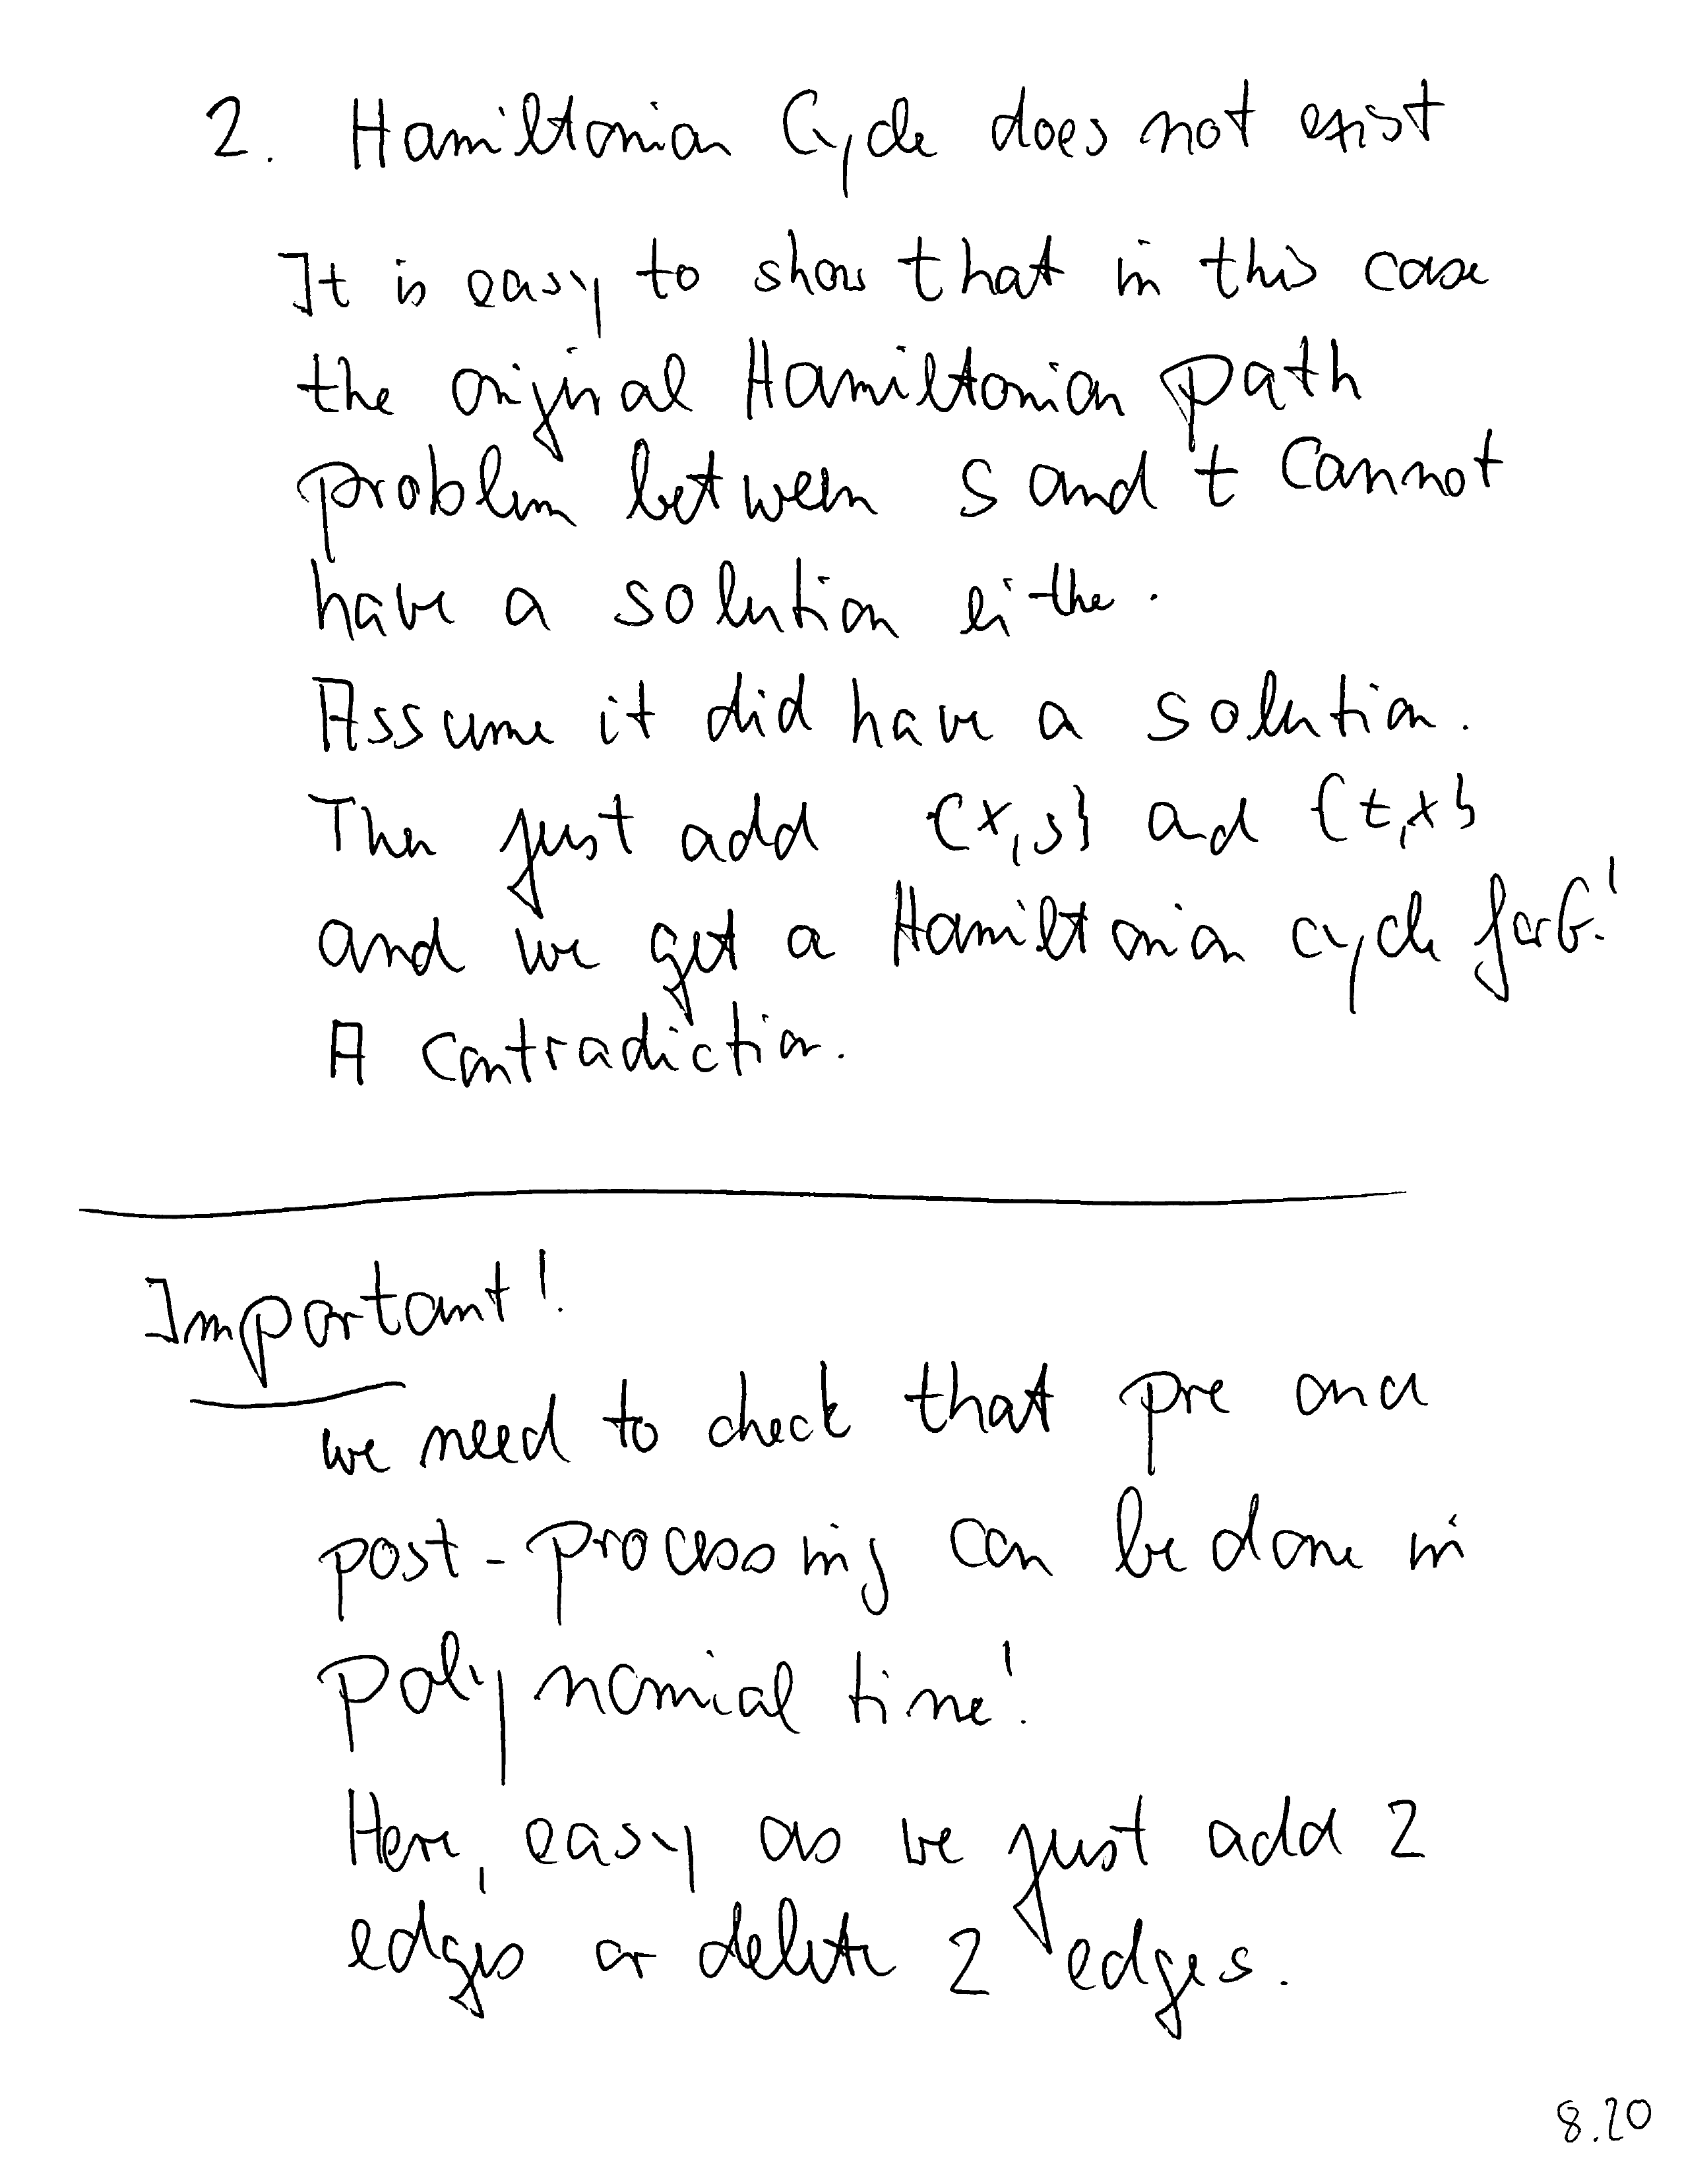 2. Hamiltonian Cycle does not exist
It is easy to show that in this case
the original Hamiltonian path
problem between s and t cannot
have a solution either.
Assume it did have a solution.
Then just add {x,s} and {t,x}
and we get a Hamiltonian cycle for G'.
A contradiction.
Important!
we need to check that pre and
post-processing can be done in
polynomial time!
Here, easy as we just add 2
edges or delete 2 edges.
8.20